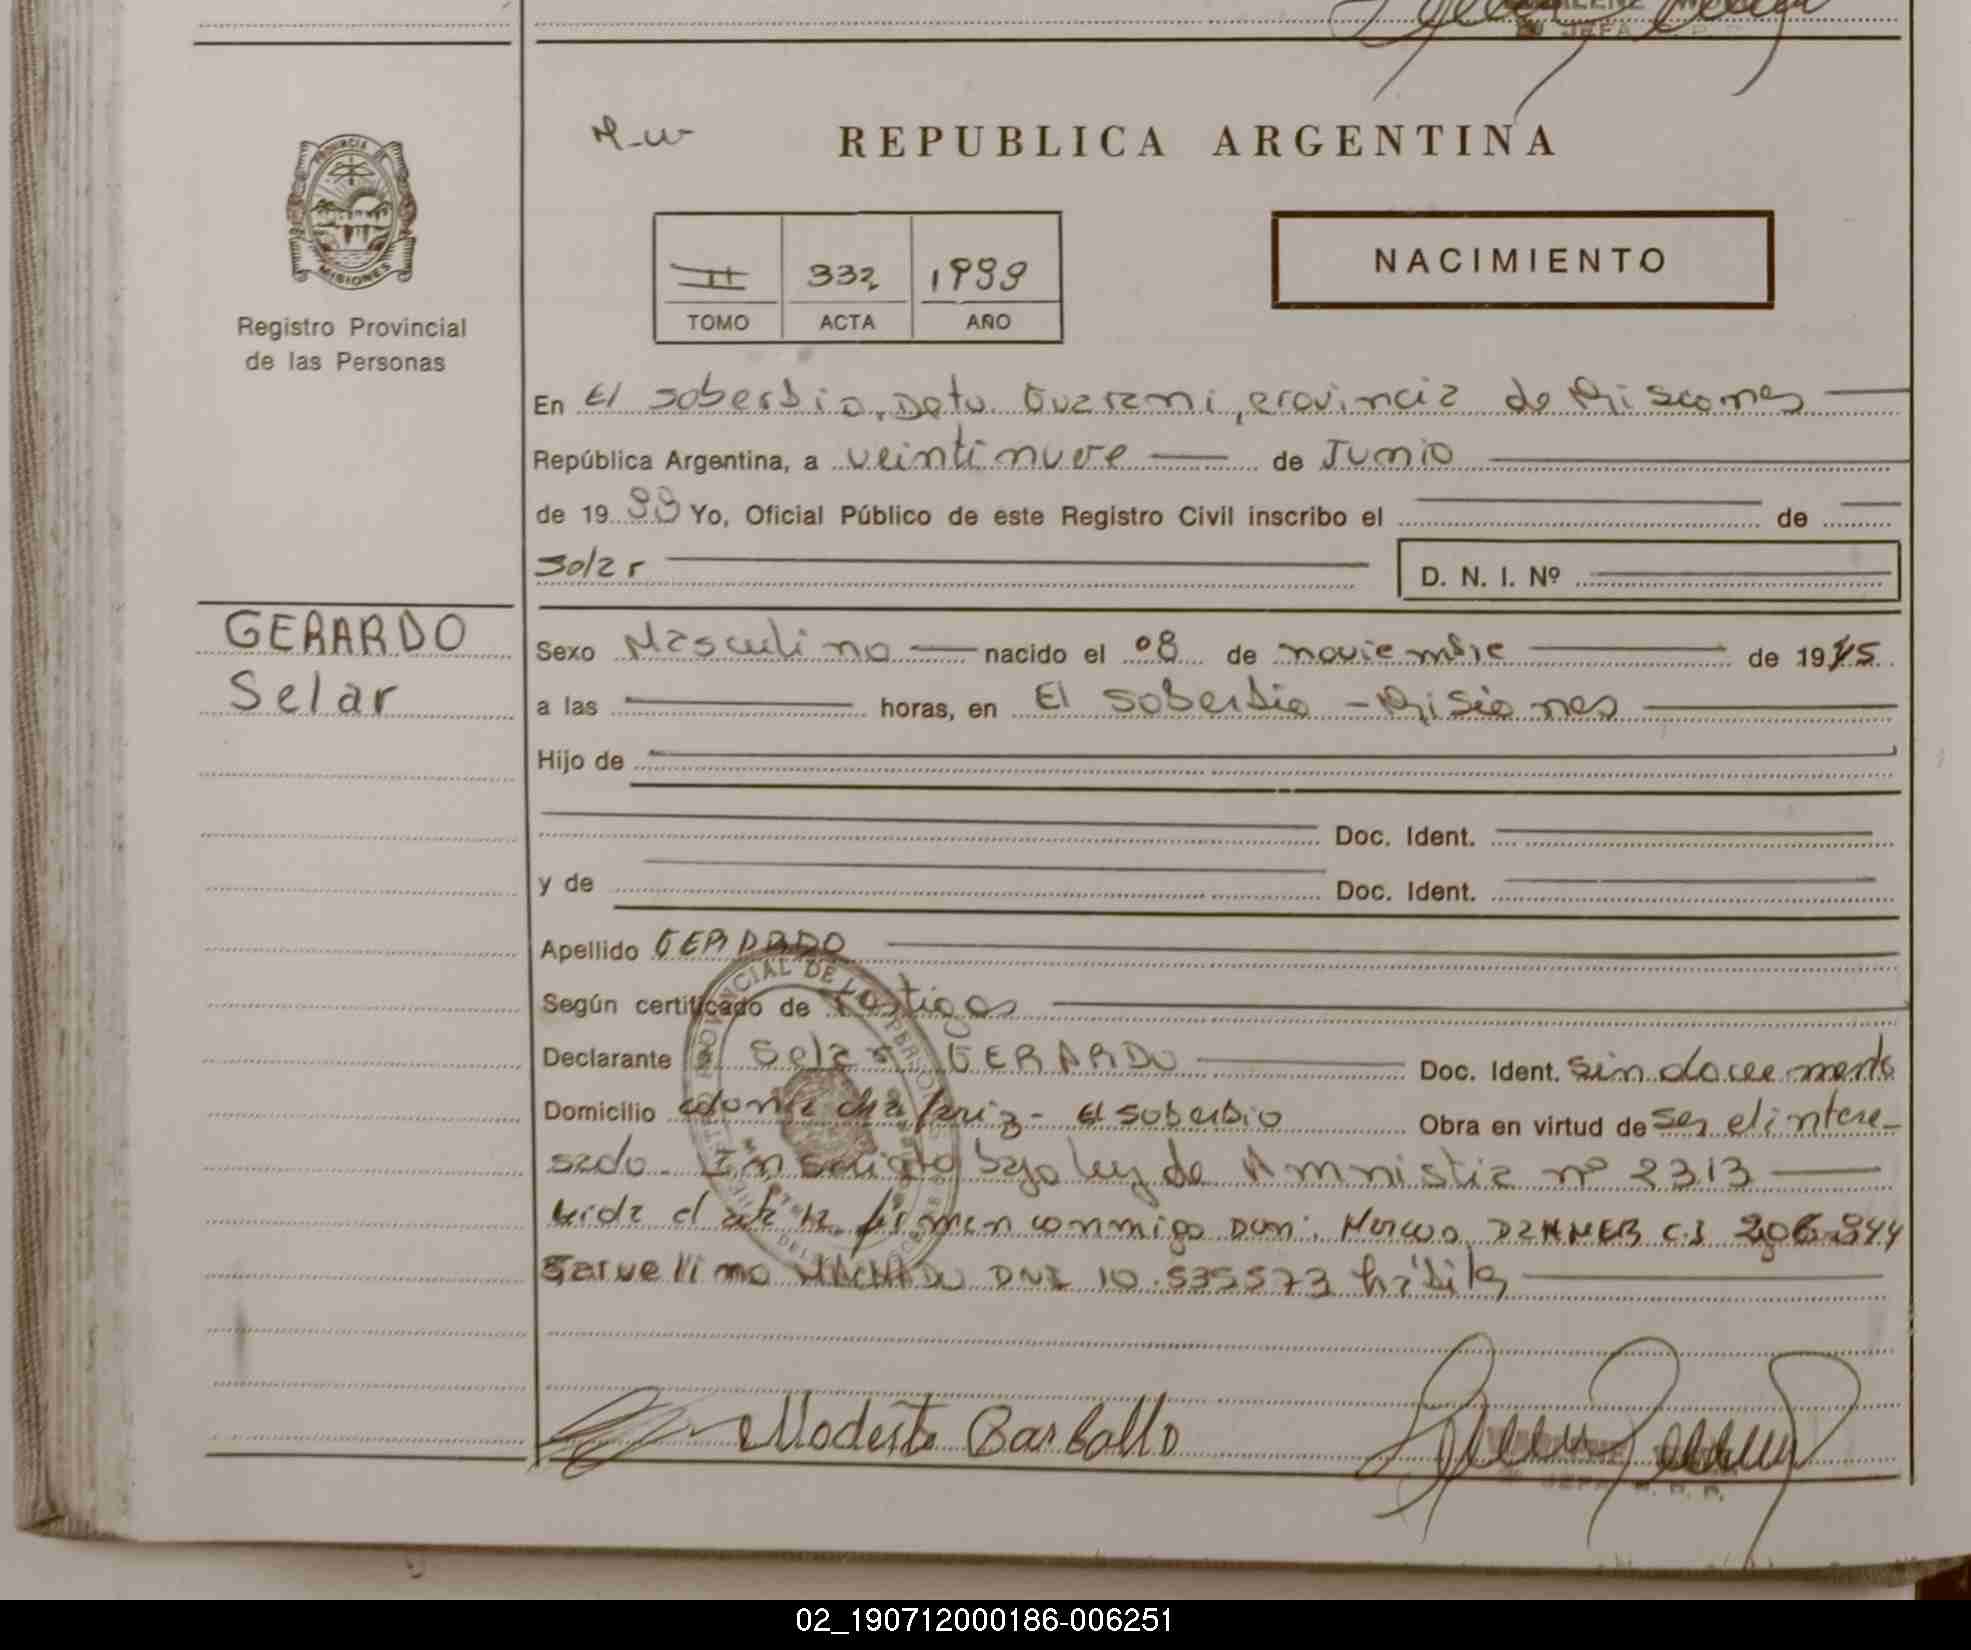 M-W
REPUBLICA ARGENTINA
PROVINCIA DE
MISIONES
Registro Provincial
de las Personas
II 332 1999
TOMO ACTA AÑO
NACIMIENTO
En El Soberbio, Dpto. Guarani, provincia de Misiones
República Argentina, a veintinueve de Junio
de 1999 Yo, Oficial Público de este Registro Civil inscribo el de
Solar
D. N. I. Nº
GERARDO
Selar
Sexo Masculino nacido el 08 de noviembre de 1975
a las horas, en El Soberbio - Misiones
Hijo de
Doc. Ident.
y de Doc. Ident.
Apellido GERARDO
Según certificado de Testigos
Declarante Selar GERARDO Doc. Ident. sin documento
Domicilio colonia - El Soberbio Obra en virtud de ser el intere-
sado. Inscripto bajo ley de Amnistia nº 2313
Leida el acta la firman conmigo Don: Marcos C.I
MACHADO DNI 10.535573 hábiles
Modesto Barballo
JEFA R. P. P.
02_190712000186-006251